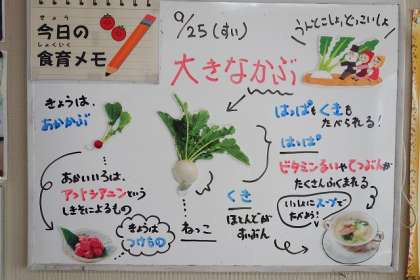 きょう
今日の
しょくいく
食育メモ
9/25(すい)
うんとこしょ、どっこいしょ
大きなかぶ
きょうは、
あかかぶ
はっぱもくきも
たべられる!
はっぱ
ビタミンるいやてつぶんが
たくさんふくまれる
あかいいろは、
アントシアニンという
しきそによるもの
くき
ほとんどが
すいぶん
いっしょにスープで
たべよう!
きょうは
つけもの
ねっこ